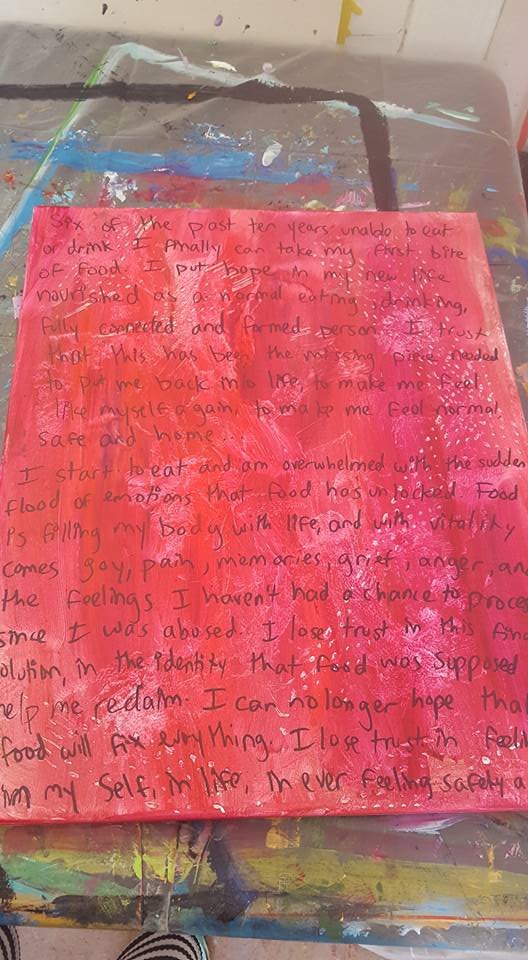 Six of the past ten years unable to eat
or drink I finally can take my first bite
of food. I put hope in my new life
nourished as a normal eating, drinking,
fully connected and formed person. I trust
that this has been the missing piece needed
to put me back into life, to make me feel
like myself again, to make me feel normal
safe and home...
I start to eat and am overwhelmed with the sudden
flood of emotions that food has unlocked. Food
is filling my body with life, and with vitality
comes joy, pain, memories, grief, anger, an
the feelings I haven't had a chance to proces
since I was abused. I lose trust in this fin
olution, in the identity that food was supposed
help me reclaim. I can no longer hope tha
food will fix everything. I lose trust in feeli
in my Self, in life, in ever feeling safety a